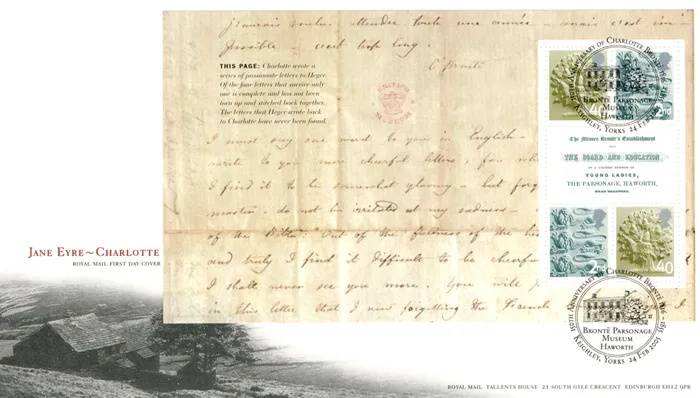 j'aurais voulu attendre toute une année — mais c'est im-
possible — c'est trop long.
C Brontë
THIS PAGE: Charlotte wrote a
series of passionate letters to Heger.
Of the four letters that survive only
one is complete and has not been
torn up and stitched back together.
The letters that Heger wrote back
to Charlotte have never been found.
BRITISH
MUSEUM
I must say one word to you in English -
write to you more cheerful letters, for wh
I find it to be somewhat gloomy - but forg
master - do not be irritated at my sadness -
of the Bible: "Out of the fullness of the
and truly I find it difficult to be cheerfu
I shall never see you more. You will
in this letter that I am forgetting the French
150TH ANNIVERSARY OF CHARLOTTE BRONTË 1816-1855
BRONTË PARSONAGE
MUSEUM
HAWORTH
KEIGHLEY, YORKS 24 FEB 2005
2nd
The Misses Brontë's Establishment
FOR
THE BOARD AND EDUCATION
OF A LIMITED NUMBER OF
YOUNG LADIES,
THE PARSONAGE, HAWORTH,
NEAR BRADFORD.
2nd
40
150TH ANNIVERSARY OF CHARLOTTE BRONTË 1816-1855
BRONTË PARSONAGE
MUSEUM
HAWORTH
KEIGHLEY, YORKS 24 FEB 2005
JANE EYRE~CHARLOTTE
ROYAL MAIL FIRST DAY COVER
ROYAL MAIL TALLENTS HOUSE 21 SOUTH GYLE CRESCENT EDINBURGH EH12 9PB